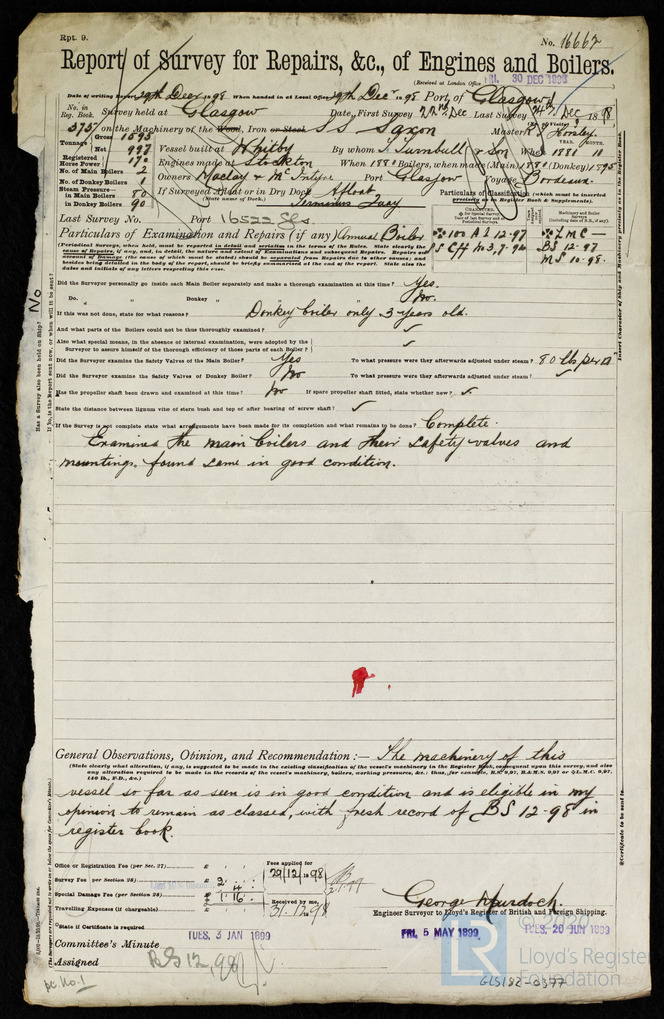 Rpt. 9.
No. 16662
Report of Survey for Repairs, &c., of Engines and Boilers.
(Received at London Office
FRI. 30 DEC 1898
Date of writing Report 29th Decr 1898 When handed in at Local Office 29th Decr 1898 Port of Glasgow
No. in Reg. Book. Survey held at Glasgow Date, First Survey Dec Last Survey Dec 1898
on the Machinery of the Wood, Iron or Steel S S Saxon Master
Tonnage Gross 1595
Net 997 Vessel built at Whitby By whom T. Turnbull & Son When 1881 11
Registered Horse Power 170 Engines made at Stockton When 1881 Boilers, when made (Main) 1881 (Donkey) 1895
No. of Main Boilers 2 Owners Maclay & McIntyre Port Glasgow Voyage Bordeaux.
No. of Donkey Boilers 1
Steam Pressure in Main Boilers 80 If Surveyed Afloat or in Dry Dock Afloat
in Donkey Boilers 90 (State name of Dock.) Terminus Quay
Particulars of Classification (which must be inserted precisely as in Register Book & Supplements).
Last Survey No. Port 16522 Gls.
Particulars of Examination and Repairs (if any) Annual Boiler
100 A1 12-97 LMC
SS Gls M3,7-92 BS 12-97
MS 10-98.
(Periodical Surveys, when held, must be reported in detail and seriatim in the terms of the Rules. State clearly the
cause of Repairs, if any, and, in detail, the nature and extent of Examinations and subsequent Repairs. Repairs on
account of Damage (the cause of which must be stated) should be separated from Repairs due to other causes; and
besides being detailed in the body of the report, should be briefly summarised at the end of the report. State also the
dates and initials of any letters respecting this case.
Did the Surveyor personally go inside each Main Boiler separately and make a thorough examination at this time? Yes.
Do. " " Donkey " " " No.
If this was not done, state for what reasons? Donkey boiler only 3 years old.
And what parts of the Boilers could not be thus thoroughly examined? ✓
Also what special means, in the absence of internal examination, were adopted by the
Surveyor to assure himself of the thorough efficiency of those parts of each Boiler? ✓
Did the Surveyor examine the Safety Valves of the Main Boiler? Yes To what pressure were they afterwards adjusted under steam? 80 lbs per □
Did the Surveyor examine the Safety Valves of Donkey Boiler? No To what pressure were they afterwards adjusted under steam? ✓
Has the propeller shaft been drawn and examined at this time? No If spare propeller shaft fitted, state whether new? ✓
State the distance between lignum vitæ of stern bush and top of after bearing of screw shaft? ✓
If the Survey is not complete state what arrangements have been made for its completion and what remains to be done? Complete.
Examined the main boilers and their safety valves and
mountings. found same in good condition.
General Observations, Opinion, and Recommendation:— The machinery of this
(State clearly what alteration, if any, is suggested to be made in the existing classification of the vessel's machinery in the Register Book, consequent upon this survey, and also
any alteration required to be made in the records of the vessel's machinery, boilers, working pressure, &c.: thus, for example, B.S. 9,97, B.&M.S. 9,97 or L.M.C. 9,97,
140 lb., F.D., &c.)
vessel so far as seen is in good condition and is eligible in my
opinion to remain as classed, with fresh record of BS 12-98 in
register book.
Office or Registration Fee (per Sec. 27) £ : :
Survey Fee (per Section 28) £ 2 : 4 :
Special Damage Fee (per Section 28) £ 1 : 16 :
Travelling Expenses (if chargeable) £ : :
Fees applied for 29/12/1898
Received by me, 31.12.98
George Murdoch.
Engineer Surveyor to Lloyd's Register of British and Foreign Shipping.
State if Certificate is required
Committee's Minute TUES. 3 JAN 1899 FRI. 5 MAY 1899 TUES. 20 JUN 1899
Assigned BS 12,98
LR
Lloyd's Register
Foundation
GLS182-0377